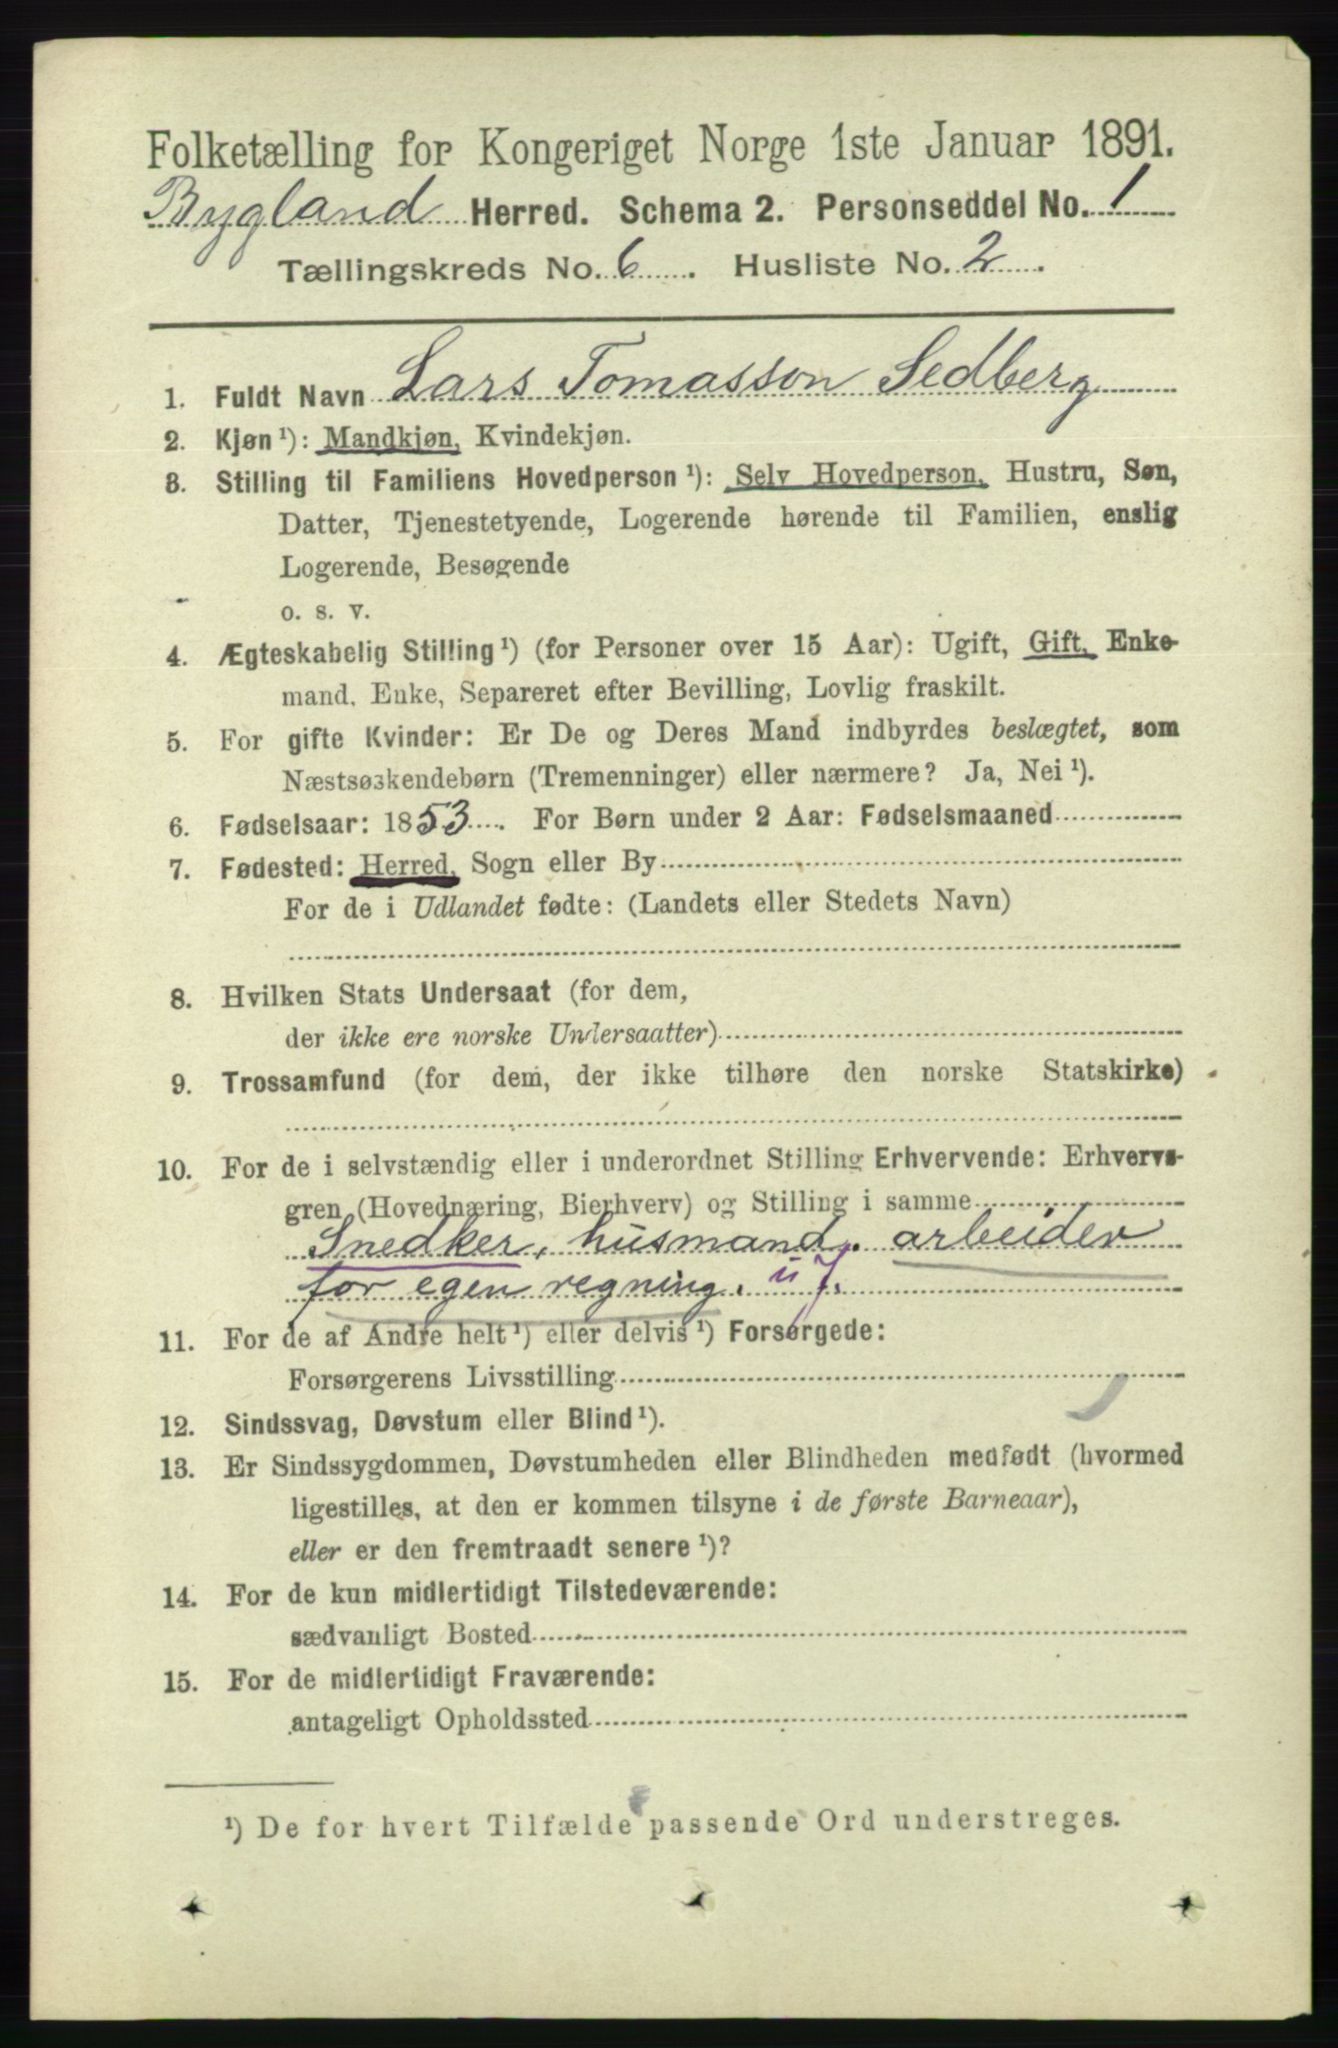 Folketælling for Kongeriget Norge 1ste Januar 1891.
Bygland Herred. Schema 2. Personseddel No. 1
Tællingskreds No. 6. Husliste No. 2.
1. Fuldt Navn Lars Tomasson Sedberg
2. Kjøn ¹): Mandkjøn, Kvindekjøn.
3. Stilling til Familiens Hovedperson ¹): Selv Hovedperson, Hustru, Søn,
Datter, Tjenestetyende, Logerende hørende til Familien, enslig
Logerende, Besøgende
o. s. v.
4. Ægteskabelig Stilling ¹) (for Personer over 15 Aar): Ugift, Gift, Enke-
mand, Enke, Separeret efter Bevilling, Lovlig fraskilt.
5. For gifte Kvinder: Er De og Deres Mand indbyrdes beslægtet, som
Næstsøskendebørn (Tremenninger) eller nærmere? Ja, Nei ¹).
6. Fødselsaar: 1853. For Børn under 2 Aar: Fødselsmaaned
7. Fødested: Herred, Sogn eller By
For de i Udlandet fødte: (Landets eller Stedets Navn)
8. Hvilken Stats Undersaat (for dem,
der ikke ere norske Undersaatter)
9. Trossamfund (for dem, der ikke tilhøre den norske Statskirke)
10. For de i selvstændig eller i underordnet Stilling Erhvervende: Erhvervs-
gren (Hovednæring, Bierhverv) og Stilling i samme
Snedker, husmand, arbeider
for egen regning. u 7.
11. For de af Andre helt ¹) eller delvis ¹) Forsørgede:
Forsørgerens Livsstilling
12. Sindssvag, Døvstum eller Blind ¹).
13. Er Sindssygdommen, Døvstumheden eller Blindheden medfødt (hvormed
ligestilles, at den er kommen tilsyne i de første Barneaar),
eller er den fremtraadt senere ¹)?
14. For de kun midlertidigt Tilstedeværende:
sædvanligt Bosted
15. For de midlertidigt Fraværende:
antageligt Opholdssted
¹) De for hvert Tilfælde passende Ord understreges.